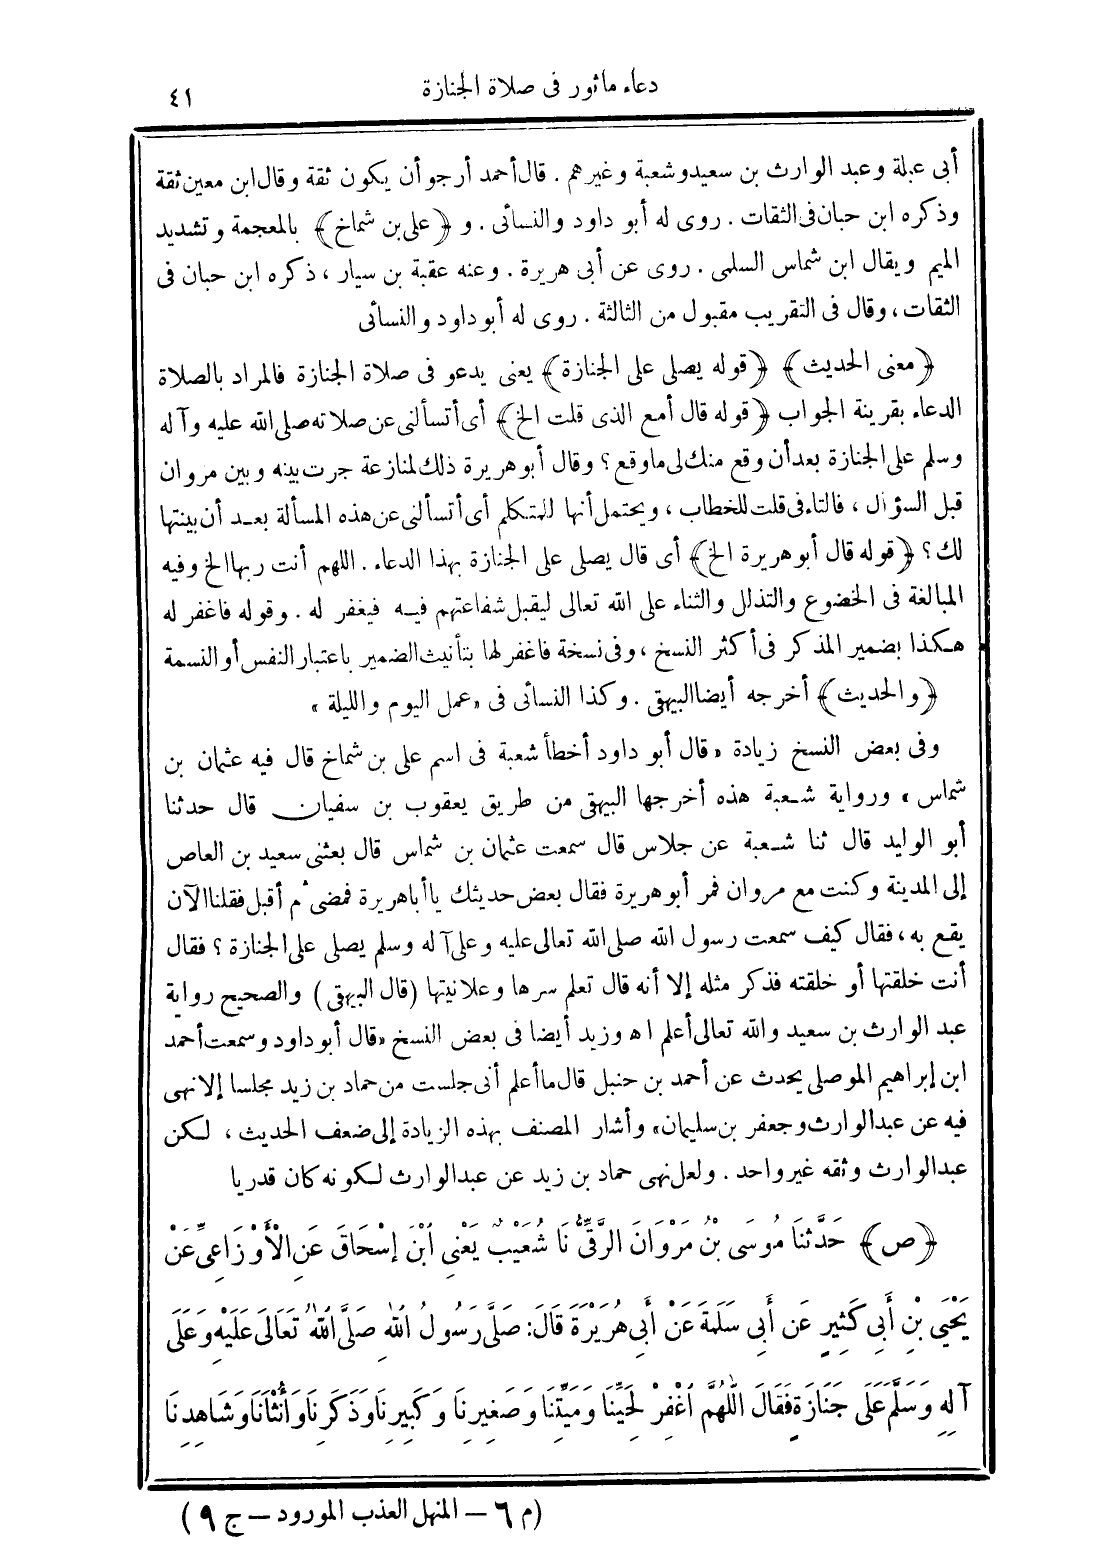 دعاء مأثور فى صلاة الجنازة ٤١
أبى عبلة وعبد الوارث بن سعيد وشعبة وغيرهم . قال أحمد أرجو أن يكون ثقة وقال ابن معين ثقة
وذكره ابن حبان فى الثقات . روى له أبو داود والنسائى . و ﴿على بن شماخ﴾ بالمعجمة وتشديد
الميم ويقال ابن شماس السلمى . روى عن أبى هريرة . وعنه عقبة بن سيار ، ذكره ابن حبان فى
الثقات ، وقال فى التقريب مقبول من الثالثة . روى له أبو داود والنسائى
﴿معنى الحديث﴾ ﴿قوله يصلى على الجنازة﴾ يعنى يدعو فى صلاة الجنازة فالمراد بالصلاة
الدعاء بقرينة الجواب ﴿قوله قال أمع الذى قلت الخ﴾ أى أتسألنى عن صلاته صلى الله عليه وآله
وسلم على الجنازة بعد أن وقع منك لى ما وقع ؟ وقال أبو هريرة ذلك لمنازعة جرت بينه وبين مروان
قبل السؤال ، فالتاء فى قلت للخطاب ، ويحتمل أنها للمتكلم أى أتسألنى عن هذه المسألة بعد أن بينتها
لك ؟ ﴿قوله قال أبو هريرة الخ﴾ أى قال يصلى على الجنازة بهذا الدعاء . اللهم أنت ربها الخ وفيه
المبالغة فى الخضوع والتذلل والثناء على الله تعالى ليقبل شفاعتهم فيه فيغفر له . وقوله فاغفر له
هكذا بضمير المذكر فى أكثر النسخ ، وفى نسخة فاغفر لها بتأنيث الضمير باعتبار النفس أو النسمة
﴿والحديث﴾ أخرجه أيضا البيهقى . وكذا النسائى فى «عمل اليوم والليلة»
وفى بعض النسخ زيادة «قال أبو داود أخطأ شعبة فى اسم على بن شماخ قال فيه عثمان بن
شماس» ورواية شعبة هذه أخرجها البيهقى من طريق يعقوب بن سفيان قال حدثنا
أبو الوليد قال ثنا شعبة عن جلاس قال سمعت عثمان بن شماس قال بعثنى سعيد بن العاص
إلى المدينة وكنت مع مروان فمر أبو هريرة فقال بعض حديثك يا أبا هريرة فمضى ثم أقبل فقلنا الآن
يقع به ، فقال كيف سمعت رسول الله صلى الله تعالى عليه وعلى آله وسلم يصلى على الجنازة ؟ فقال
أنت خلقتها أو خلقته فذكر مثله إلا أنه قال تعلم سرها وعلانيتها (قال البيهقى) والصحيح رواية
عبد الوارث بن سعيد والله تعالى أعلم اه وزيد أيضا فى بعض النسخ «قال أبو داود وسمعت أحمد
ابن إبراهيم الموصلى يحدث عن أحمد بن حنبل قال ما أعلم أنى جلست من حماد بن زيد مجلسا إلا نهى
فيه عن عبد الوارث وجعفر بن سليمان» وأشار المصنف بهذه الزيادة إلى ضعف الحديث ، لكن
عبد الوارث وثقه غير واحد . ولعل نهى حماد بن زيد عن عبد الوارث لكونه كان قدريا
﴿ص﴾ حَدَّثَنَا مُوسَى بْنُ مَرْوَانَ الرَّقِّىُّ نَا شُعَيْبٌ يَعْنِى ابْنَ إِسْحَاقَ عَنِ الْأَوْزَاعِىِّ عَنْ
يَحْيَى بْنِ أَبِى كَثِيرٍ عَن أَبِى سَلَمَةَ عَنْ أَبِى هُرَيْرَةَ قَالَ: صَلَّى رَسُولُ اللهِ صَلَّى اللهُ تَعَالَى عَلَيْهِ وَعَلَى
آلِهِ وَسَلَّمَ عَلَى جَنَازَةٍ فَقَالَ اللَّهُمَّ اغْفِرْ لِحَيِّنَا وَمَيِّتِنَا وَصَغِيرِنَا وَكَبِيرِنَا وَذَكَرِنَا وَأُنْثَانَا وَشَاهِدِنَا
(م ٦ – المنهل العذب المورود – ج ٩)